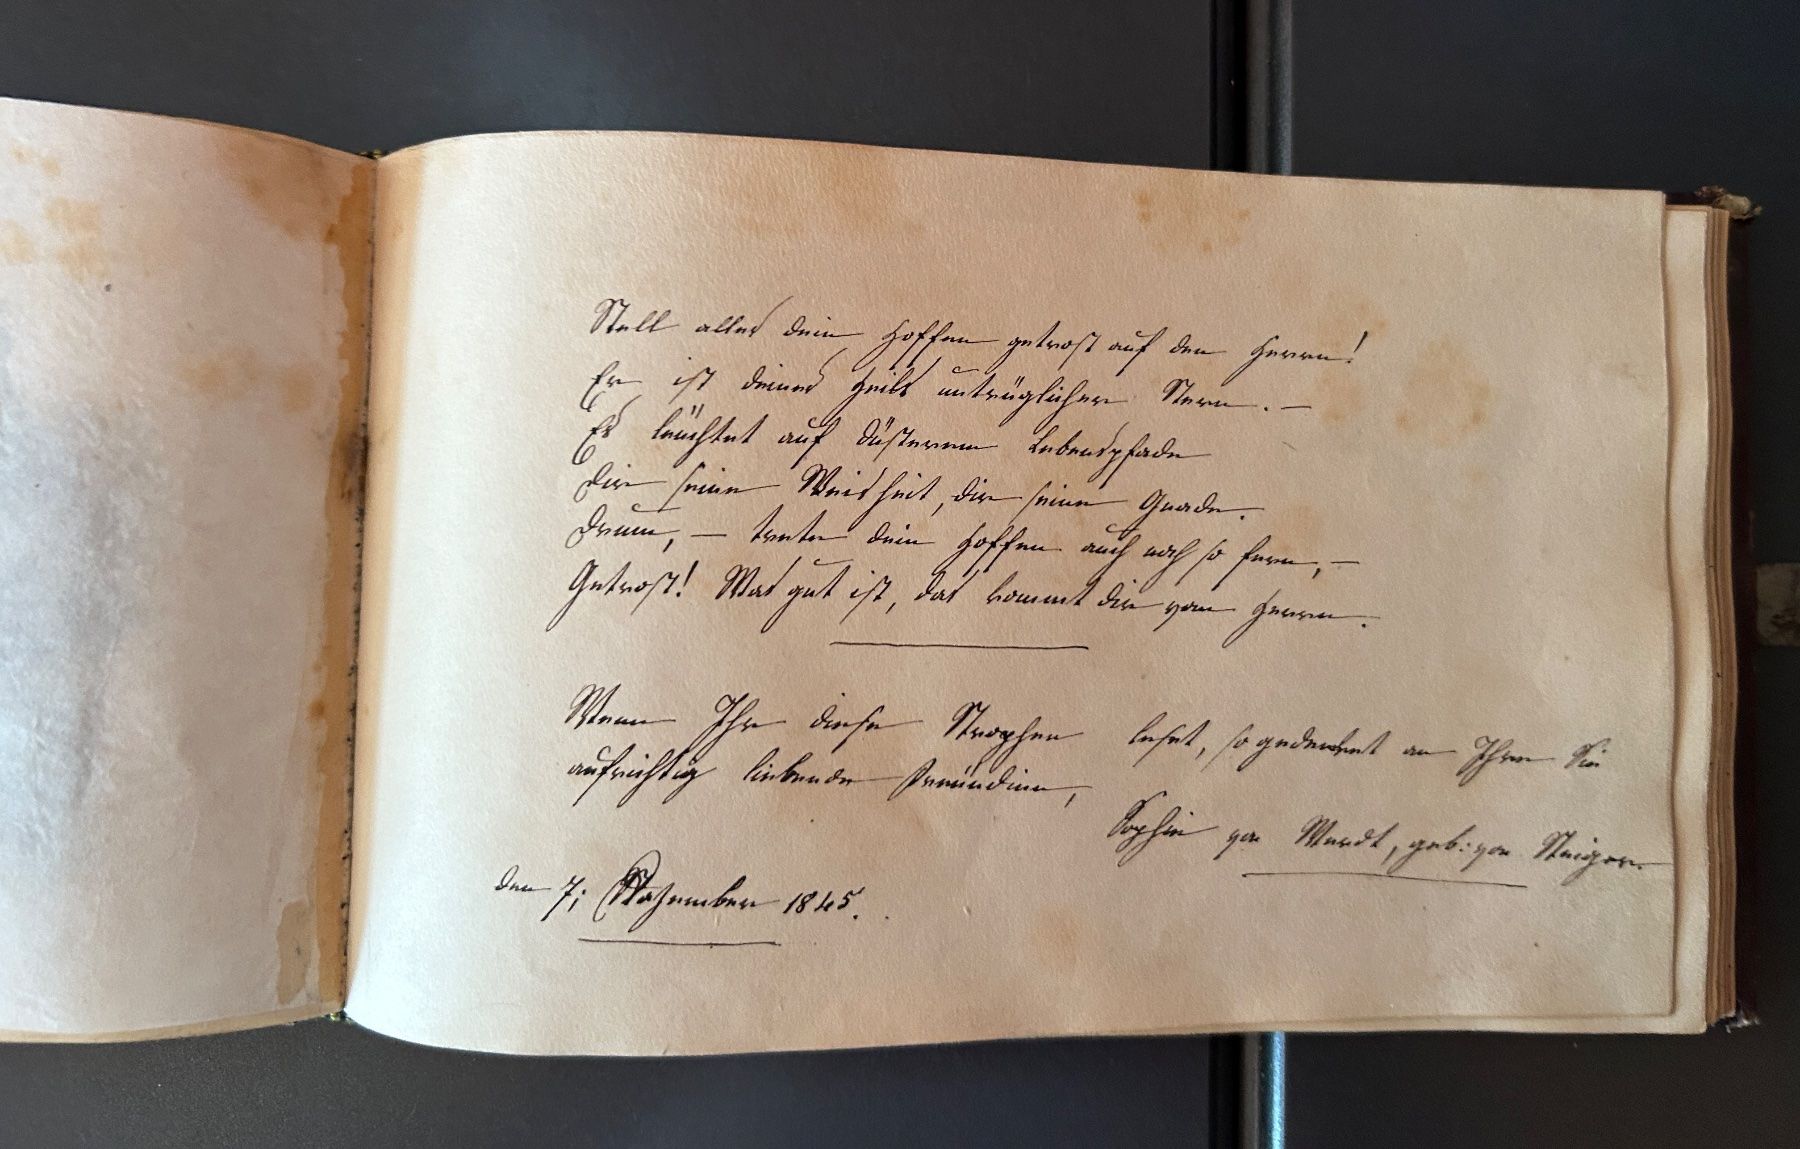 Stell alles dein Hoffen getrost auf den Herrn!
Er ist deines Heils untrüglicher Stern. —
Es leüchtet auf düsterem Lebenspfade
Dir seine Weisheit, dir seine Gnade.
Drum, — trete dein Hoffen auch noch so fern, —
Getrost! Was gut ist, das kommt dir vom Herrn.
Wenn Ihr diese Strophen leset, so gedenket an Ihre Sie
aufrichtig liebende Freündinn,
Sophie von Werdt, geb: von Steiger.
den 7; November 1845.